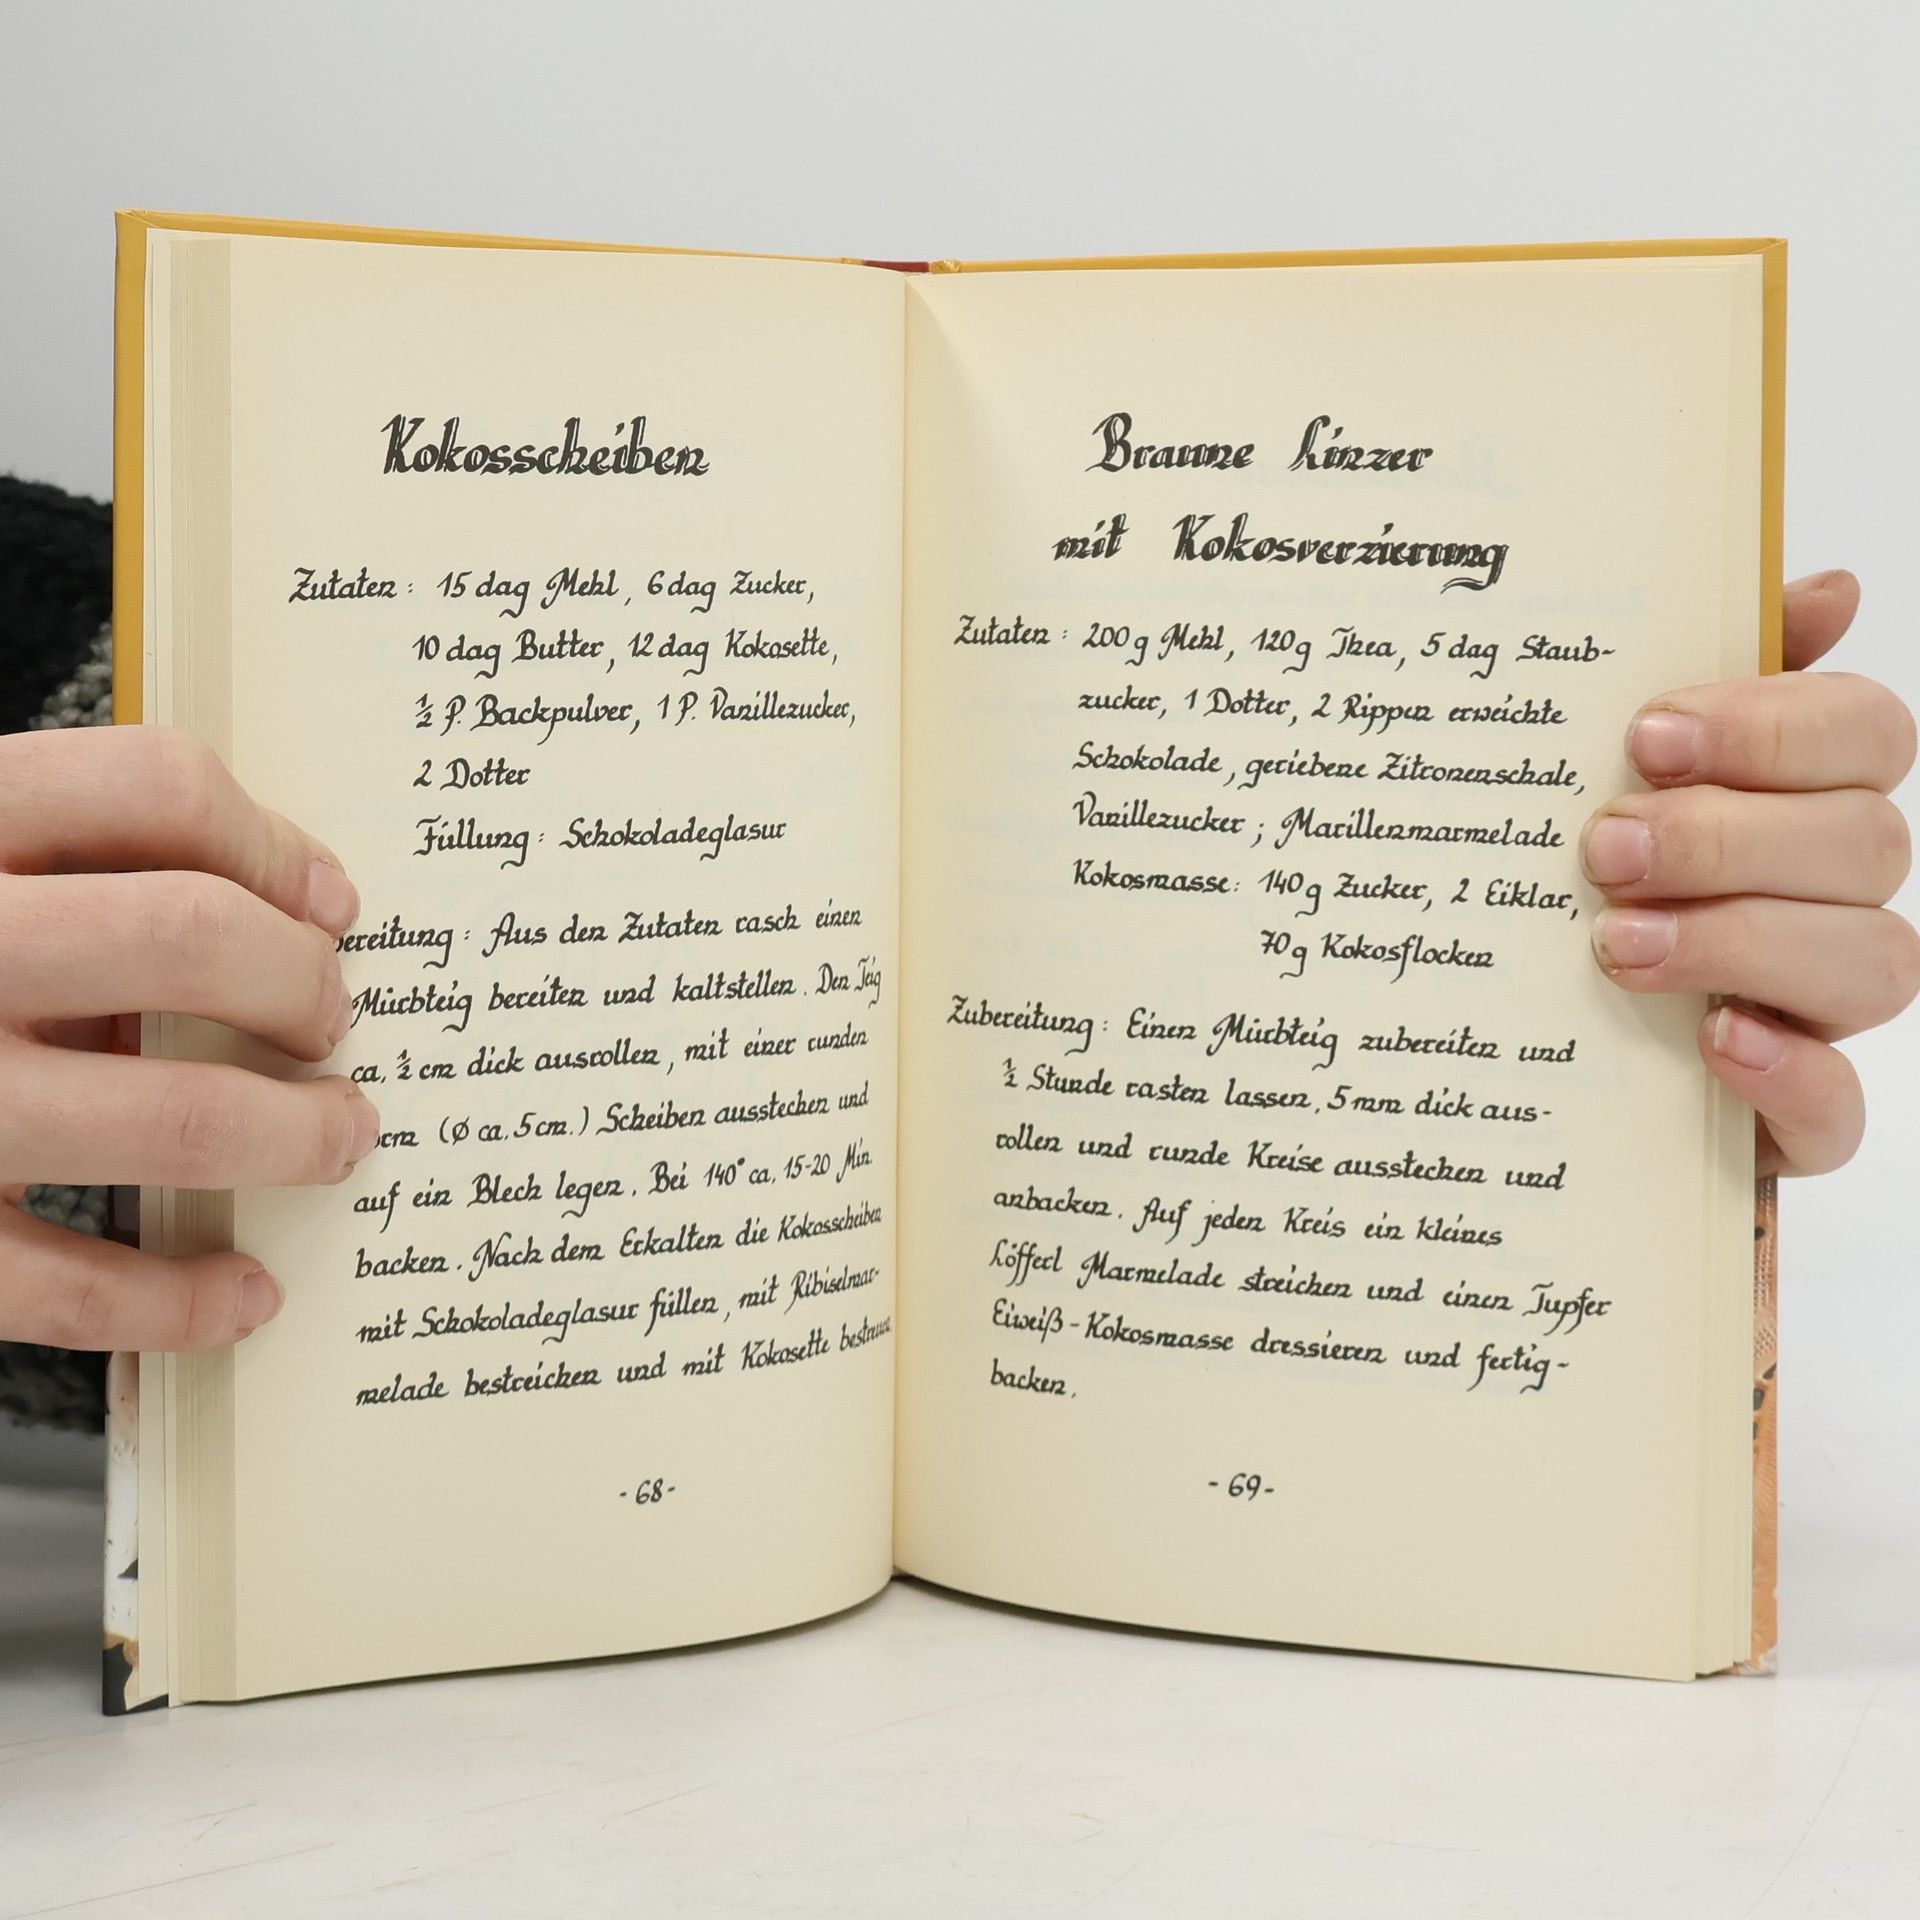 Kokosscheiben
Zutaten : 15 dag Mehl, 6 dag Zucker,
10 dag Butter, 12 dag Kokosette,
½ P. Backpulver, 1 P. Vanillezucker,
2 Dotter
Füllung : Schokoladeglasur
bereitung : Aus den Zutaten rasch einen
Mürbteig bereiten und kaltstellen. Den Teig
ca. ½ cm dick ausrollen, mit einer runden
(Ø ca. 5 cm.) Scheiben ausstechen und
auf ein Blech legen. Bei 140° ca. 15-20 Min.
backen. Nach dem Erkalten die Kokosscheiben
mit Schokoladeglasur füllen, mit Ribiselmar-
melade bestreichen und mit Kokosette bestreuen.
- 68 -
Braune Linzer
mit Kokosverzierung
Zutaten : 200 g Mehl, 120 g Thea, 5 dag Staub-
zucker, 1 Dotter, 2 Rippen erweichte
Schokolade, geriebene Zitronenschale,
Vanillezucker ; Marillenmarmelade
Kokosmasse : 140 g Zucker, 2 Eiklar,
70 g Kokosflocken
Zubereitung : Einen Mürbteig zubereiten und
½ Stunde rasten lassen, 5 mm dick aus-
rollen und runde Kreise ausstechen und
anbacken. Auf jeden Kreis ein kleines
Löfferl Marmelade streichen und einen Tupfer
Eiweiß - Kokosmasse dressieren und fertig -
backen.
- 69 -